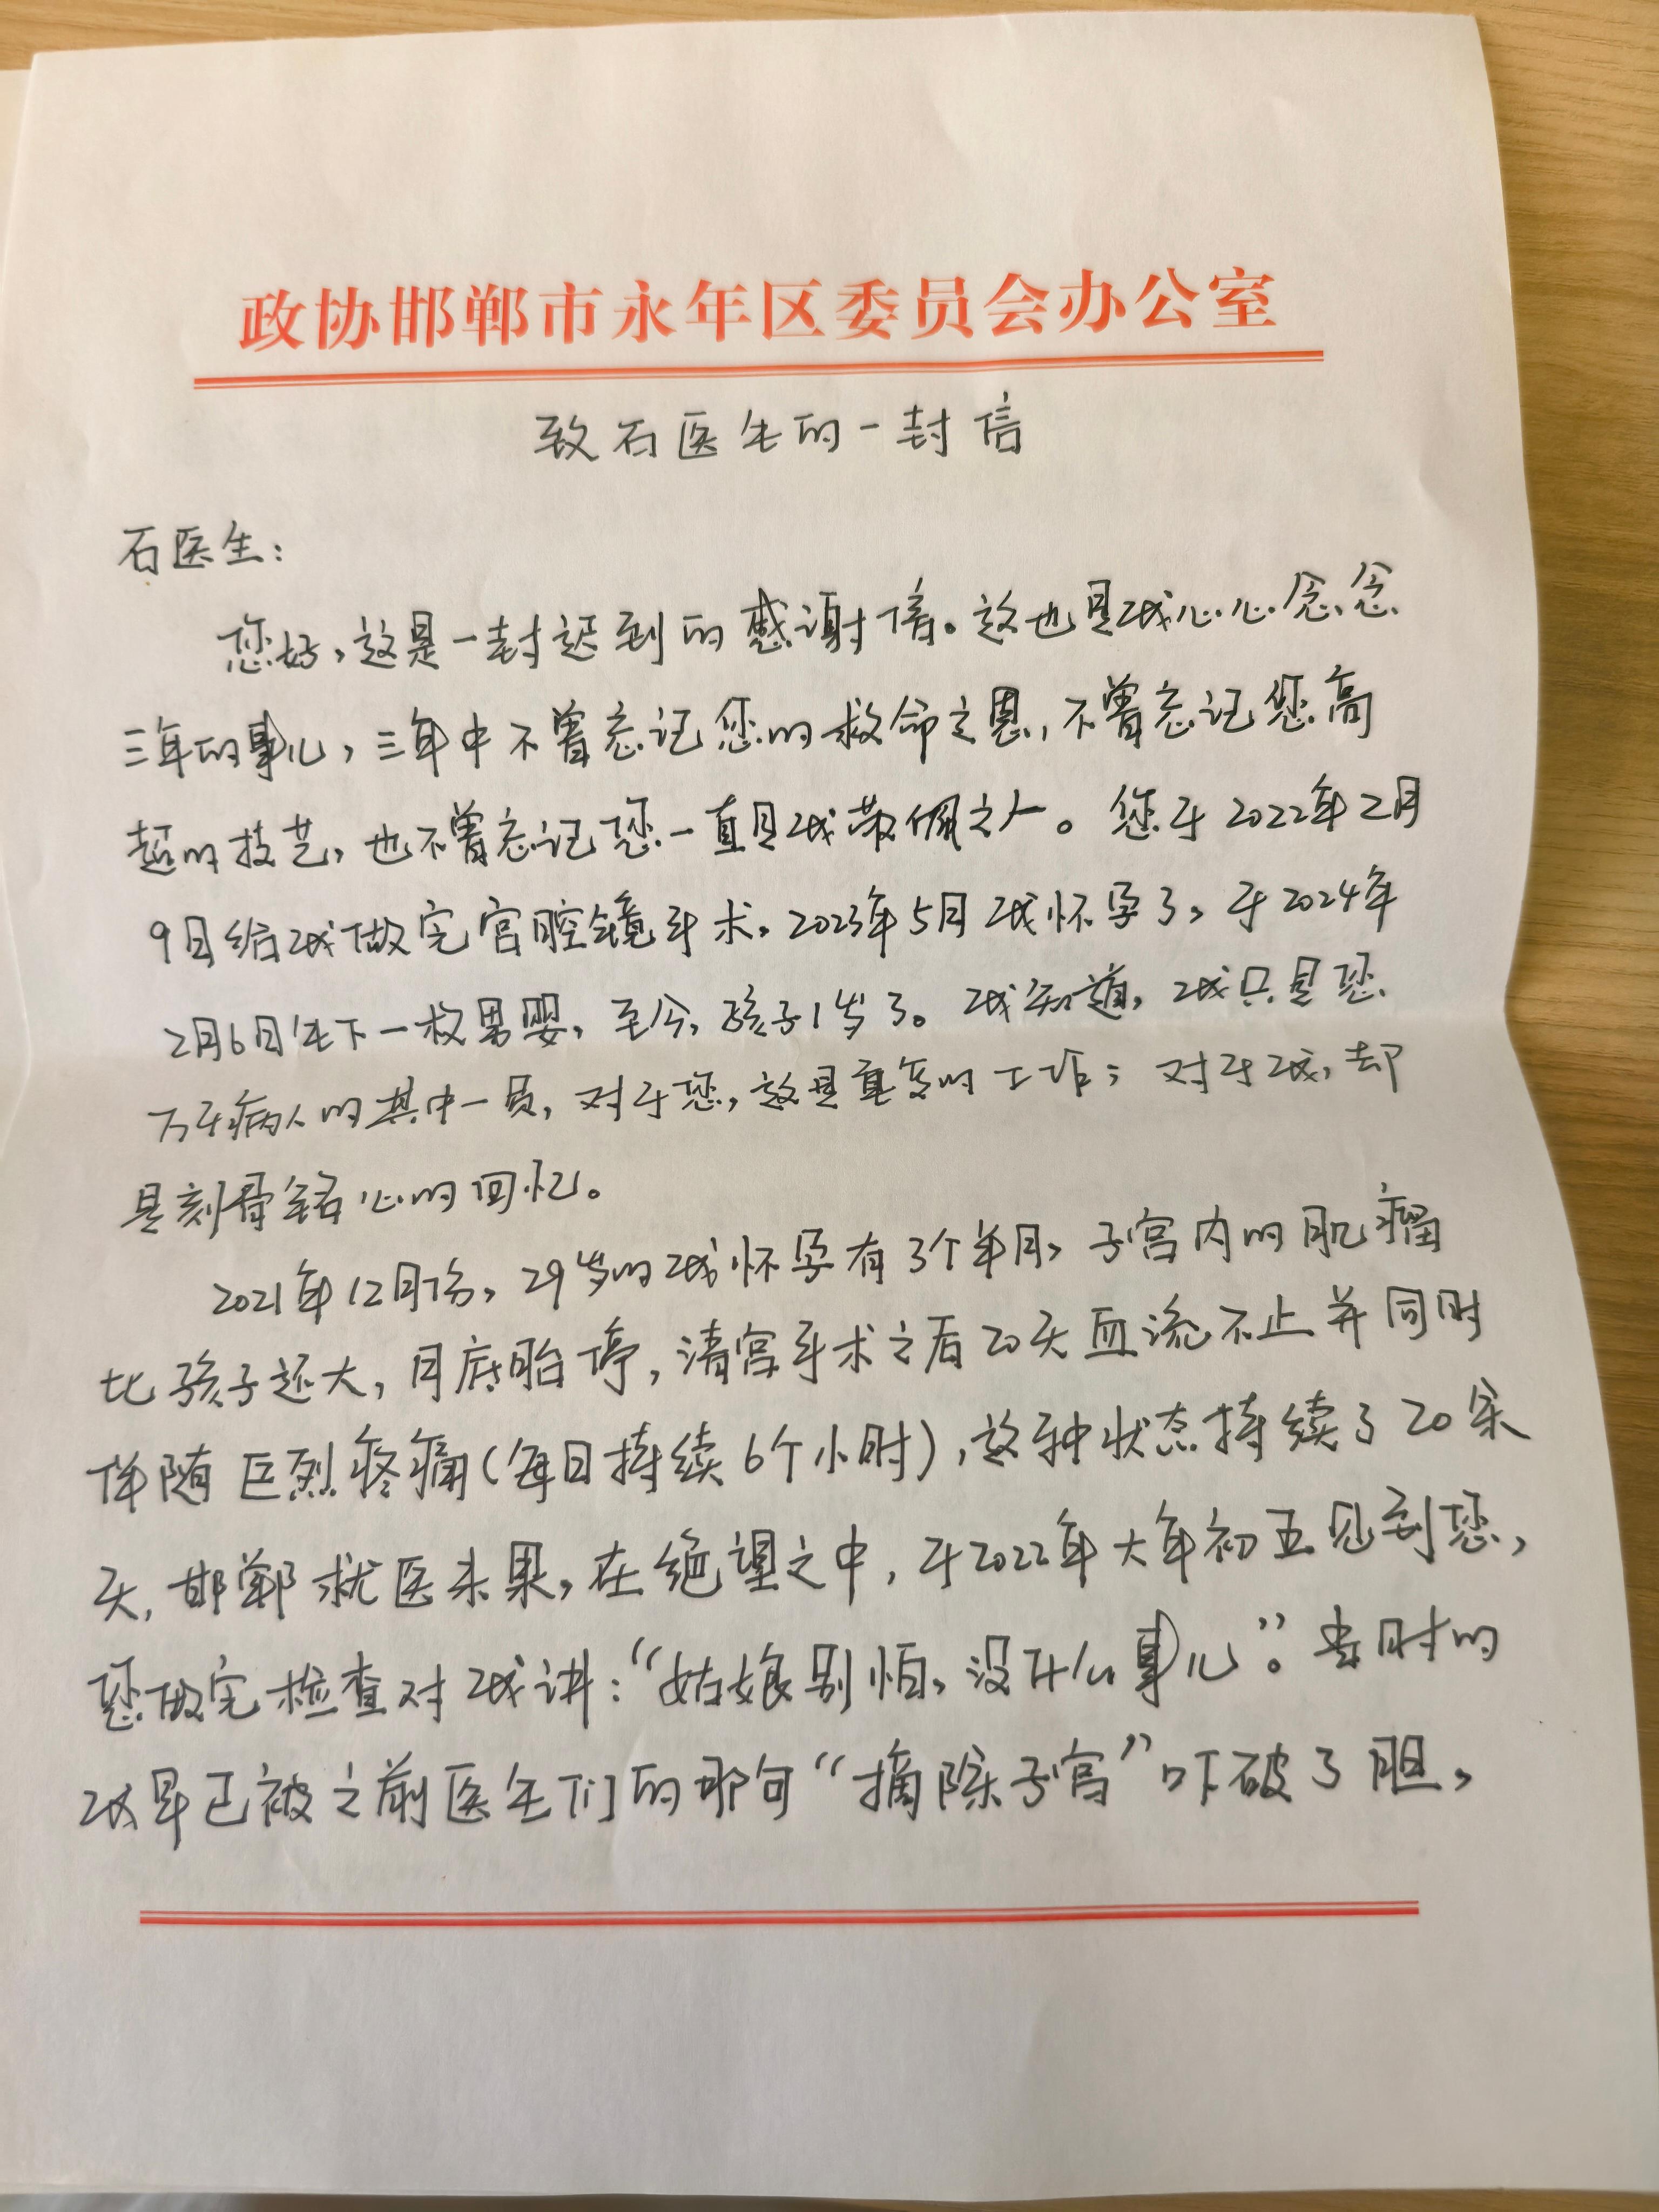 政协邯郸市永年区委员会办公室
致石医生的一封信
石医生：
您好，这是一封迟到的感谢信。这也是我心心念念
三年的事儿，三年中不曾忘记您的救命之恩，不曾忘记您高
超的技艺，也不曾忘记您一直是我敬佩之人。您于2022年2月
9日给我做完宫腔镜手术。2023年5月我怀孕了，于2024年
2月6日生下一枚男婴，至今，孩子1岁了。我知道，我只是您
万千病人的其中一员，对于您，这是重复的工作；对于我，却
是刻骨铭心的回忆。
2021年12月份，29岁的我怀孕有3个半月，子宫内的肌瘤
比孩子还大，月底胎停，清宫手术之后20天血流不止并同时
伴随巨烈疼痛（每日持续6个小时），这种状态持续了20余
天，邯郸求医未果，在绝望之中，于2022年大年初五见到您，
您做完检查对我讲：“姑娘别怕，没什么事儿”。当时的
我早已被之前医生们的那句“摘除子宫”吓破了胆，